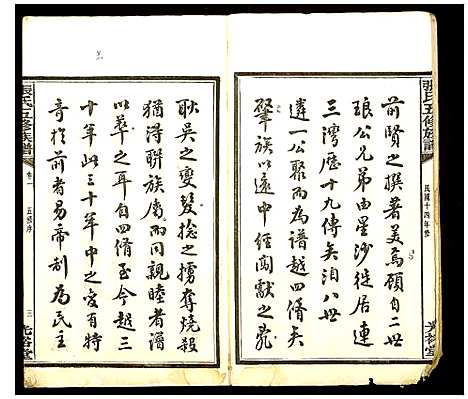 張氏五修族譜
民國十四年修
光裕堂
前賢之撰著美焉顧自二世
琅公兄弟由星沙徙居連
三灣歷十九傳矣洎八世
遴一公而為譜越四脩矣
肇族以遠中經闖獻之亂
耿吳之變髮捻之擄奪燒殺
猶得聯族屬而同親睦者譜
以萃之耳自四脩至今越三
十年此三十年中之變有特
奇於前者易帝制為民主
張氏五修族譜
卷一
五修序
三
光裕堂